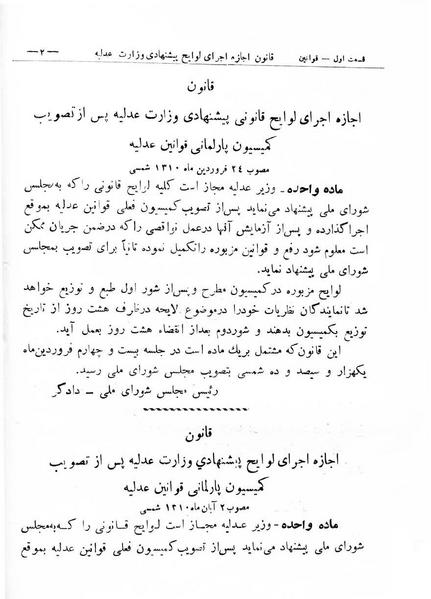 قسمت اول — قوانین      قانون اجازه اجرای لوایح پیشنهادی وزارت عدلیه      —۲—
قانون
اجازه اجرای لوایح قانونی پیشنهادی وزارت عدلیه پس از تصویب
کمیسیون پارلمانی قوانین عدلیه
مصوب ۲۴ فروردین ماه ۱۳۱۰ شمسی
ماده واحده – وزیر عدلیه مجاز است کلیه لوایح قانونی را که به مجلس
شورای ملی پیشنهاد می نماید پس از تصویب کمیسیون فعلی قوانین عدلیه بموقع
اجرا گذارده و پس از آزمایش آنها در عمل نواقصی را که در ضمن جریان ممکن
است معلوم شود رفع و قوانین مزبوره را تکمیل نموده ثانیاً برای تصویب بمجلس
شورای ملی پیشنهاد نماید.
لوایح مزبوره در کمیسیون مطرح و پس از شور اول طبع و توزیع خواهد
شد تا نمایندگان نظریات خود را در موضوع لایحه در ظرف هشت روز از تاریخ
توزیع بکمیسیون بدهند و شور دوم بعد از انقضاء هشت روز بعمل آید.
این قانون که مشتمل بر یک ماده است در جلسه بیست و چهارم فروردین ماه
یکهزار و سیصد و ده شمسی بتصویب مجلس شورای ملی رسید.
رئیس مجلس شورای ملی – دادگر
قانون
اجازه اجرای لوایح پیشنهادی وزارت عدلیه پس از تصویب
کمیسیون پارلمانی قوانین عدلیه
مصوب ۲ آبان ماه ۱۳۱۰ شمسی
ماده واحده – وزیر عدلیه مجاز است لوایح قانونی را که به مجلس
شورای ملی پیشنهاد می نماید پس از تصویب کمیسیون فعلی قوانین عدلیه بموقع